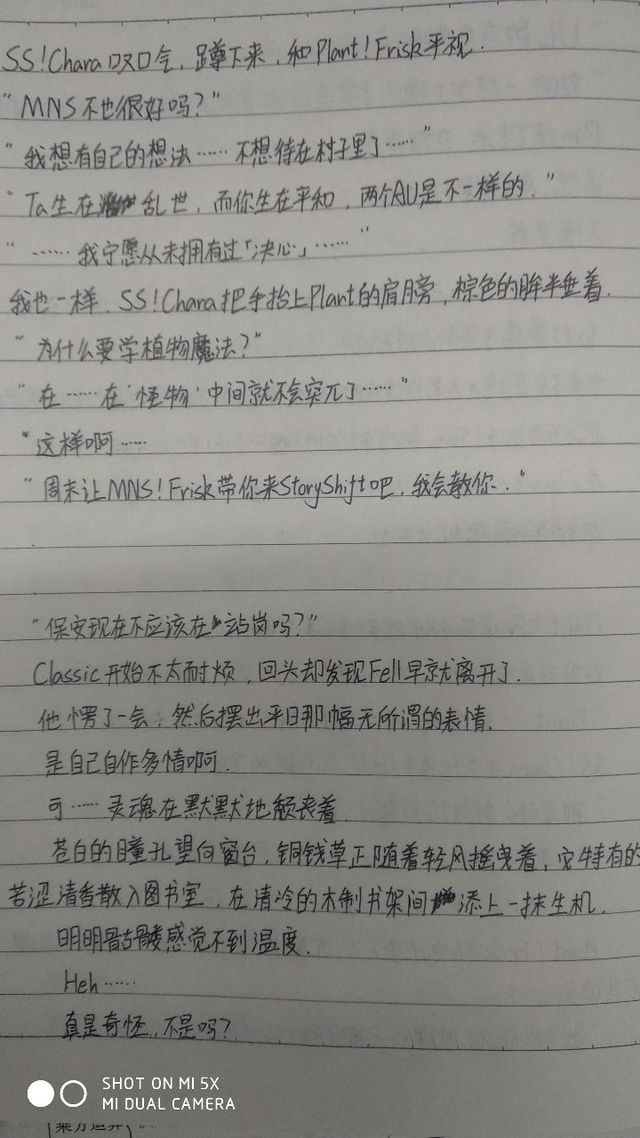 SS!Chara叹口气，蹲下来，和Plant!Frisk平视．
“MNS不也很好吗？”
“我想有自己的想法……不想待在村子里了……”
“Ta生在乱世，而你生在平和，两个AU是不一样的．”
“……我宁愿从未拥有过「决心」……”
我也一样．SS!Chara把手抬上Plant的肩膀，棕色的眸半垂着．
“为什么要学植物魔法？”
“在……在‘怪物’中间就不会突兀了……”
“这样啊……
“周末让MNS!Frisk带你来StoryShift吧，我会教你．”
“保安现在不应该在站岗吗？”
Classic开始不太耐烦，回头却发现Fell早就离开了．
他愣了一会，然后摆出平日那幅无所谓的表情．
是自己自作多情啊．
可……灵魂在默默地颤丧着．
苍白的瞳孔望向窗台，铜钱草正随着轻风摇曳着，它特有的
苦涩清香散入图书室，在清冷的木制书架间添上一抹生机．
明明骷髅感觉不到温度．
Heh……
真是奇怪，不是吗？
SHOT ON MI 5X
MI DUAL CAMERA
乘方运算